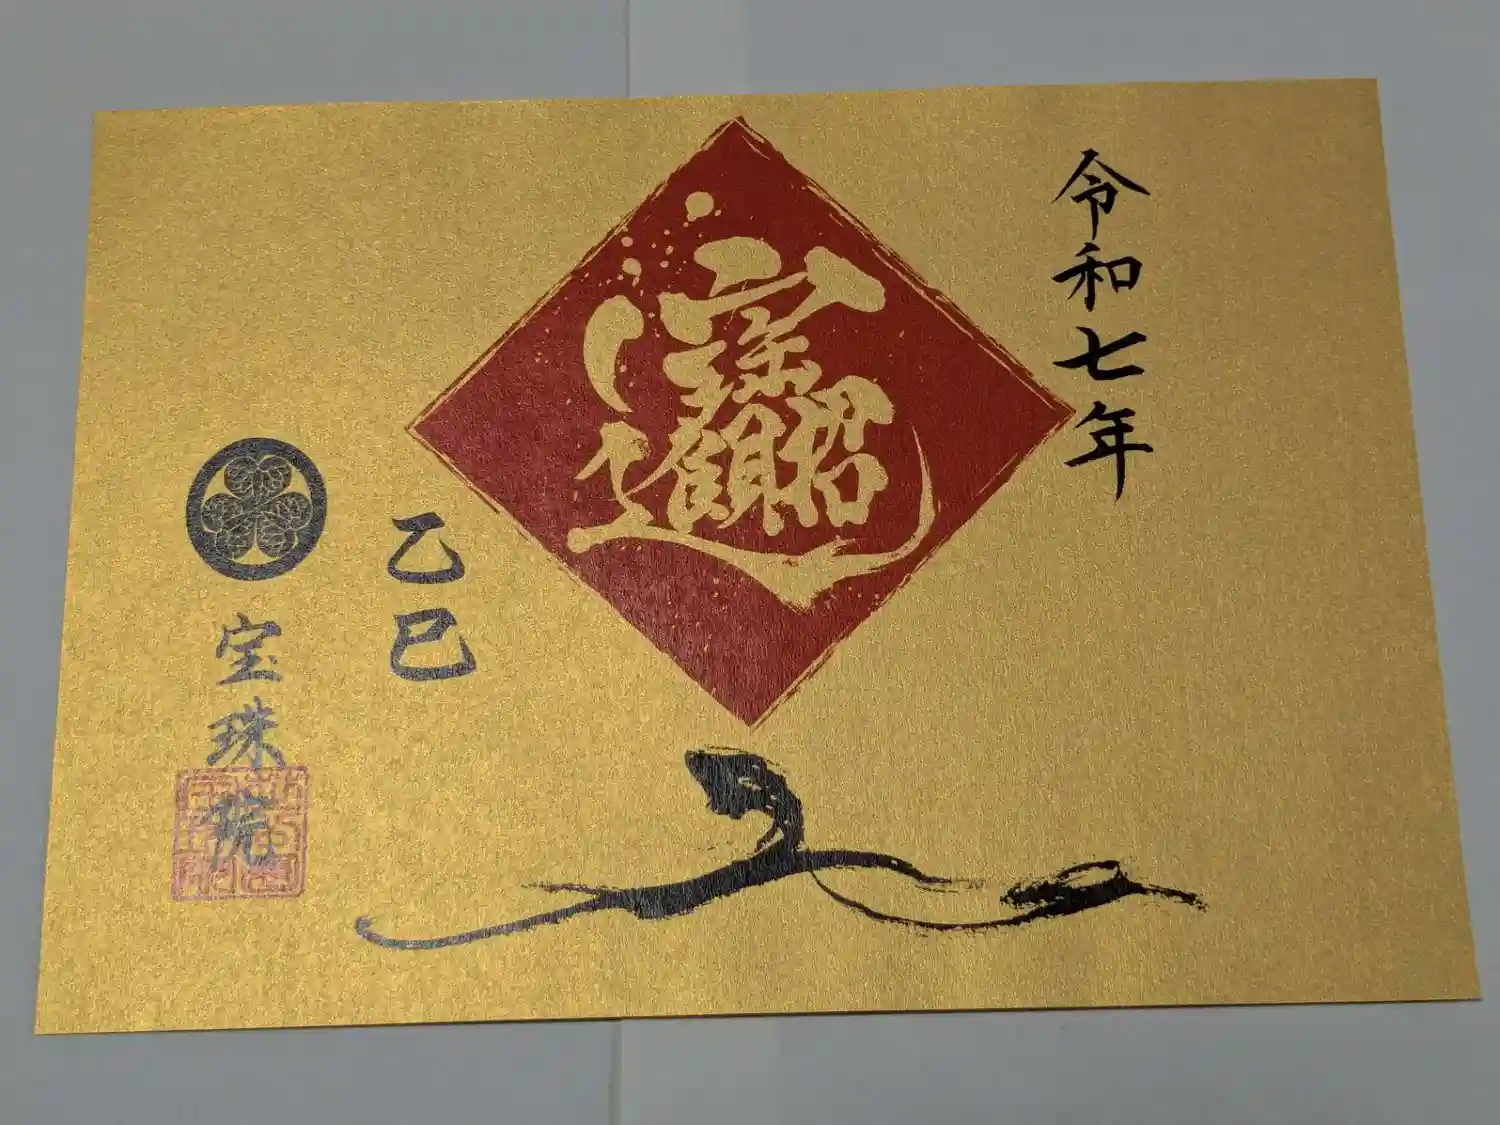 令和七年
招財進寶
乙巳
宝珠院